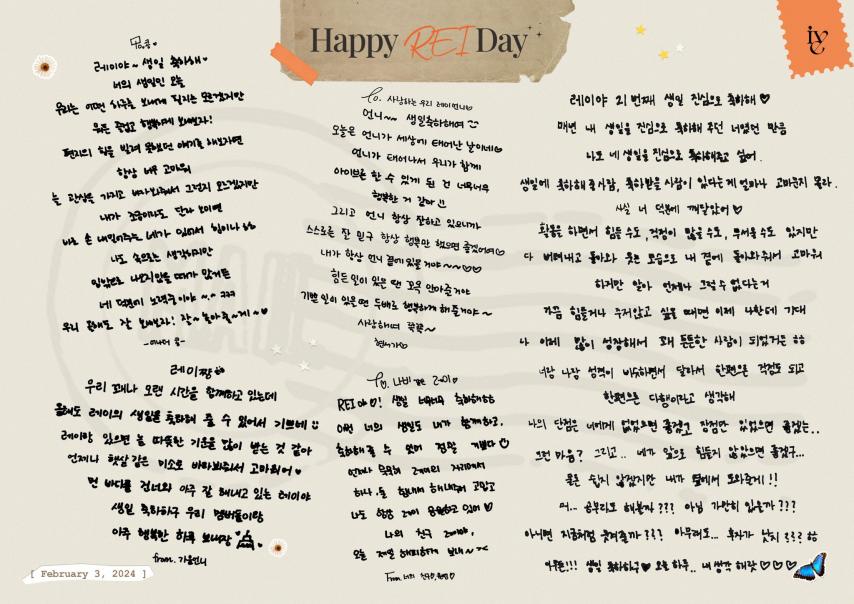 Happy REI Day
IVE
레이야~ 생일 축하해♥
너의 생일인 오늘
우리는 어떤 하루를 보내게 될지는 모르겠지만
항상 너무 고마워
늘 관심을 가지고 바라봐줘서 그런지 모르겠지만
내가 조금이라도 단 보이면
바로 손 내밀어주는 네가 있어서 힘이나
나도 속으로는 생각하지만
입밖으로 나오지않을 때가 많거든
네 덕분에 노력중이야 ^.^ ㅋㅋㅋ
우리 올해도 잘 보내보자! 잘~ 놀아줄~게~♥
To. 사랑하는 우리 레이언니♡
언니~~ 생일축하해여
오늘은 언니가 세상에 태어난 날이네♡
언니가 태어나서 우리가 함께
아이브를 할 수 있게 된 건 너무너무
행복한 거 같아!!
그리고 언니 항상 잘하고 있으니까
스스로를 잘 믿구 항상 행복만 했으면 좋겠어여♡
내가 항상 언니 곁에 있을거야~~♡♡
힘든일이 있을 땐 꼬옥 안아줄거야
기쁜 일이 있을 땐 두배로 행복하게 해줄거야~
사랑하여 꾹꾹~
현서가♡
레이야 21번째 생일 진심으로 축하해♡
매년 내 생일을 진심으로 축하해 주던 너였던 만큼
나도 네 생일을 진심으로 축하해주고 싶어.
생일에 축하해줄사람, 축하받을 사람이 있다는게 얼마나 고마운지 몰라.
사실 너 덕분에 깨달았어♡
활동을 하면서 힘들 수도, 걱정이 많을 수도, 무서울 수도 있지만
다 버텨내고 돌아와 웃는 모습으로 내 곁에 돌아와줘서 고마워
하지만 알아 언제나 그럴 수 없다는거
가끔 힘들거나 주저앉고 싶을 때면 이제 나한테 기대
나 이제 많이 성장해서 꽤 튼튼한 사람이 되었거든 ㅎㅎ
너랑 나랑 성격이 비슷하면서 달라서 한편으론 걱정도 되고
한편으론 다행이라고 생각해
나의 단점은 너에게 없었으면 좋겠고 장점만 있었으면 좋겠는..
그런 마음? 그리고.. 네가 앞으로 힘들지 않았으면 좋겠구...
물론 쉽지 않겠지만 내가 옆에서 도와줄게!!
어... 공부라도 해볼까??? 아님 가만히 있을까???
아니면 지금처럼 웃겨줄까??? 아무래도... 후자가 낫지??? ㅎㅎ
아무튼!!! 생일 축하하구♥ 오늘 하루.. 내 생각 해랏♡♡♡
레이짱
우리 꽤나 오랜 시간을 함께하고 있는데
올해도 레이의 생일을 축하해 줄 수 있어서 기쁘네
레이랑 있으면 늘 따뜻한 기운을 많이 받는 것 같아
언제나 햇살같은 미소로 바라봐줘서 고마워어♥
먼 바다를 건너와 아주 잘 해내고 있는 레이야
생일 축하하구 우리 멤버들이랑
아주 행복만 하루 보내장
from. 가을언니
To. 나비 레이♡
REI야♡! 생일 너무너무 축하해해
이번 너의 생일도 내가 함께하고,
축하해줄 수 있어 정말 기쁘다♡
언제나 묵묵히 2레이의 자리에서
하나, 둘 힘내며 해내줘서 고맙고
나도 항상 2레이 응원하고 있어♡
나의 친구 레이야,
오늘 제일 해피하게 보내~><
[ February 3, 2024 ]